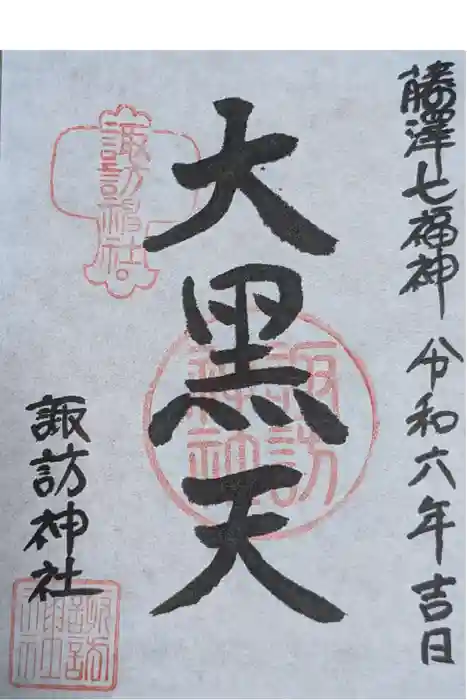 藤澤七福神 令和六年吉日
大黒天
諏訪神社
諏訪神社
諏訪神社
諏訪神社